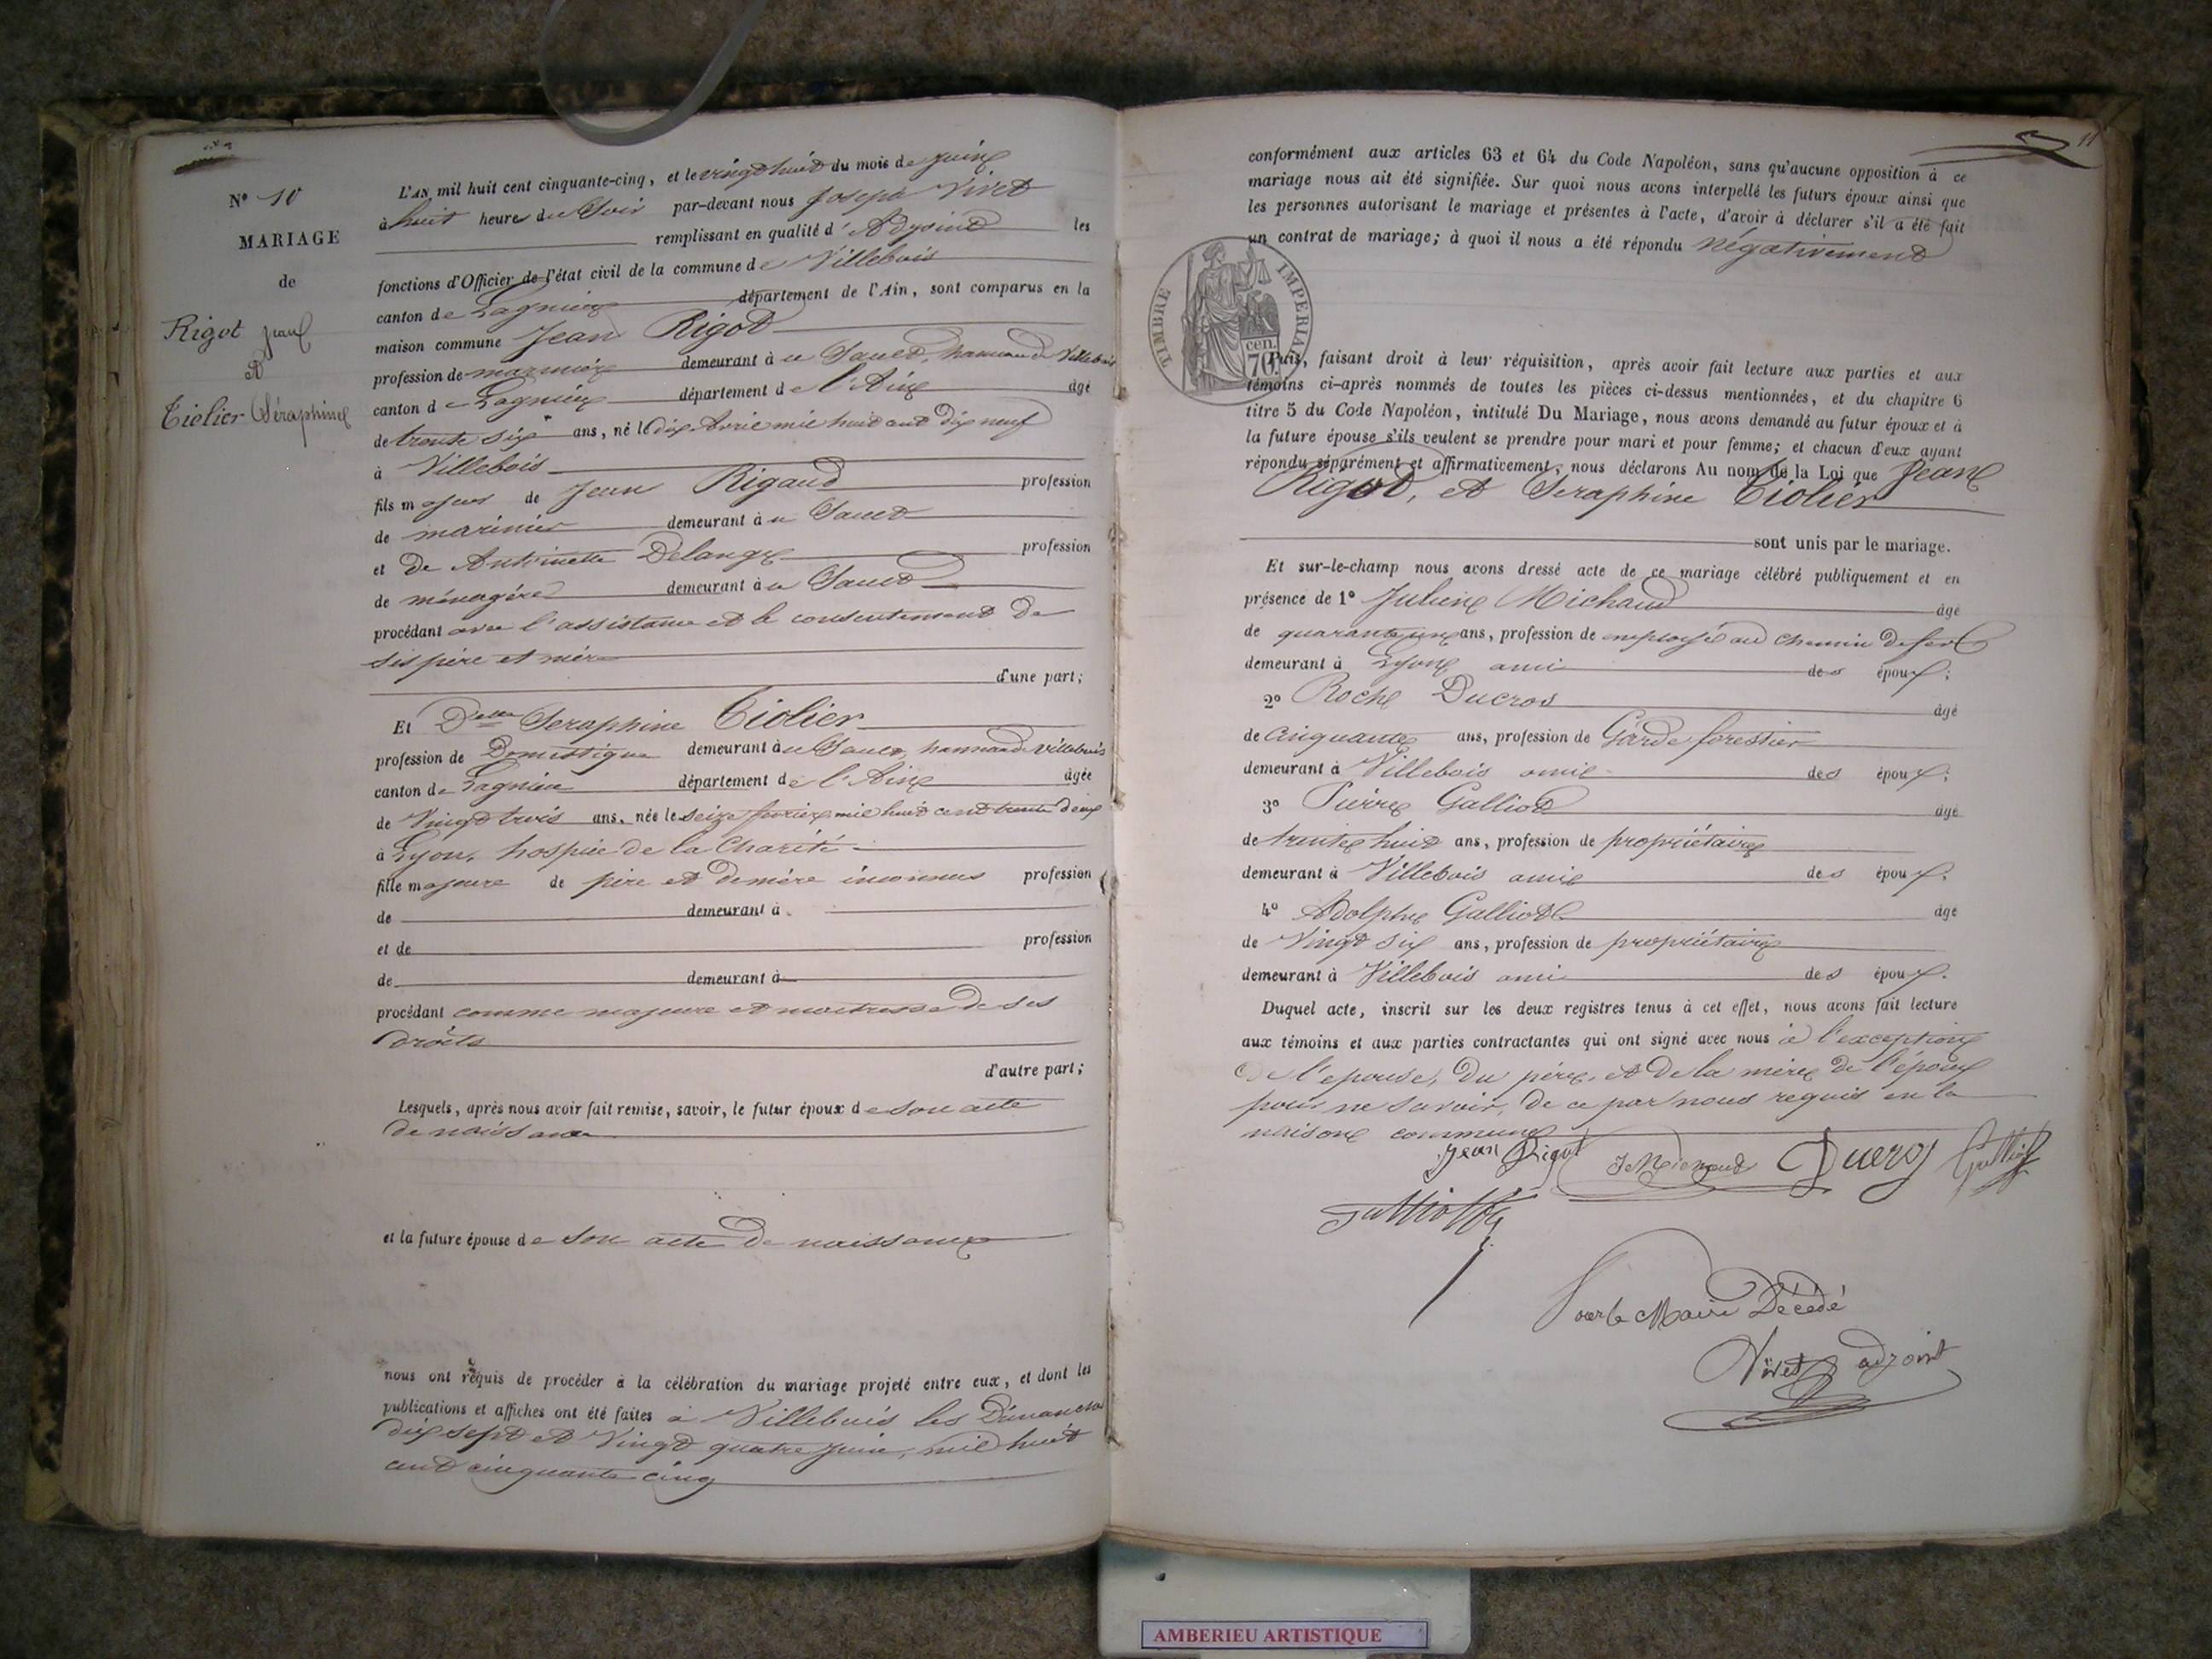 N° 10
MARIAGE
de
Rigot Jean
et
Tiolier Séraphine
L'AN mil huit cent cinquante-cinq, et le vingt huit du mois de juin
à huit heures du Soir par-devant nous Joseph Vivet
remplissant en qualité d'Adjoint les
fonctions d'Officier de l'état civil de la commune de Villebois
canton de Lagnieu département de l'Ain, sont comparus en la
maison commune Jean Rigot
profession de marinier demeurant à au Sault, hameau de Villebois
canton de Lagnieu département de l'Ain âgé
de trente six ans, né le dix Avril mil huit cent dix neuf
à Villebois
fils majeur de Jean Rigaud profession
de marinier demeurant à au Sault
et de Antoinette Delange profession
de ménagère demeurant à au Sault
procédant avec l'assistance et le consentement de
ses père et mère
d'une part;
Et Delle Seraphine Tiolier
profession de Domestique demeurant à au Sault, hameau de Villebois
canton de Lagnieu département de l'Ain âgée
de Vingt trois ans, née le seize fevrier mil huit cent trente deux
à Lyon, hospice de la Charité
fille majeure de père et de mère inconnus profession
de demeurant à
et de profession
de demeurant à
procédant comme majeure et maitresse de ses
droits
d'autre part;
Lesquels, après nous avoir fait remise, savoir, le futur époux de son acte
de naissance
et la future épouse de son acte de naissance
nous ont requis de procéder à la célébration du mariage projeté entre eux, et dont les
publications et affiches ont été faites à Villebois les Dimanches
dix sept et Vingt quatre juin, mil huit
cent cinquante cinq
11
conformément aux articles 63 et 64 du Code Napoléon, sans qu'aucune opposition à ce
mariage nous ait été signifiée. Sur quoi nous avons interpellé les futurs époux ainsi que
les personnes autorisant le mariage et présentes à l'acte, d'avoir à déclarer s'il a été fait
un contrat de mariage; à quoi il nous a été répondu Négativement
TIMBRE IMPERIAL
70 cen.
Puis, faisant droit à leur réquisition, après avoir fait lecture aux parties et aux
témoins ci-après nommés de toutes les pièces ci-dessus mentionnées, et du chapitre 6
titre 5 du Code Napoléon, intitulé Du Mariage, nous avons demandé au futur époux et à
la future épouse s'ils veulent se prendre pour mari et pour femme; et chacun d'eux ayant
répondu séparément et affirmativement, nous déclarons Au nom de la Loi que Jean
Rigot, et Seraphine Tiolier
sont unis par le mariage.
Et sur-le-champ nous avons dressé acte de ce mariage célébré publiquement et en
présence de 1° Julien Michaud âgé
de quarante un ans, profession de employé au chemin de fer
demeurant à Lyon ami des époux;
2° Roche Ducros âgé
de Cinquante ans, profession de Garde forestier
demeurant à Villebois ami des époux;
3° Pierre Galliot âgé
de trente huit ans, profession de propriétaire
demeurant à Villebois ami des époux.
4° Adolphe Galliot âgé
de Vingt six ans, profession de propriétaire
demeurant à Villebois ami des époux.
Duquel acte, inscrit sur les deux registres tenus à cet effet, nous avons fait lecture
aux témoins et aux parties contractantes qui ont signé avec nous à l'exception
de l'épouse, du père, et de la mère de l'époux
pour ne savoir, de ce par nous requis en la
maison commune
Jean Rigot Ducros Galliot
Pour le Maire Décédé
Vivet adjoint
AMBERIEU ARTISTIQUE